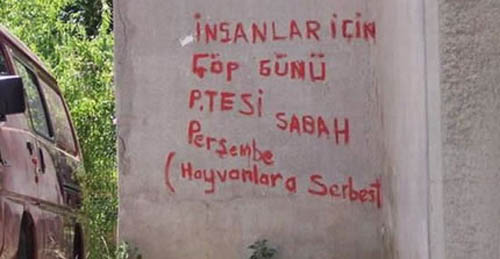 İNSANLAR İÇİN
ÇÖP GÜNÜ
P.TESİ SABAH
Perşembe
(Hayvanlara Serbest